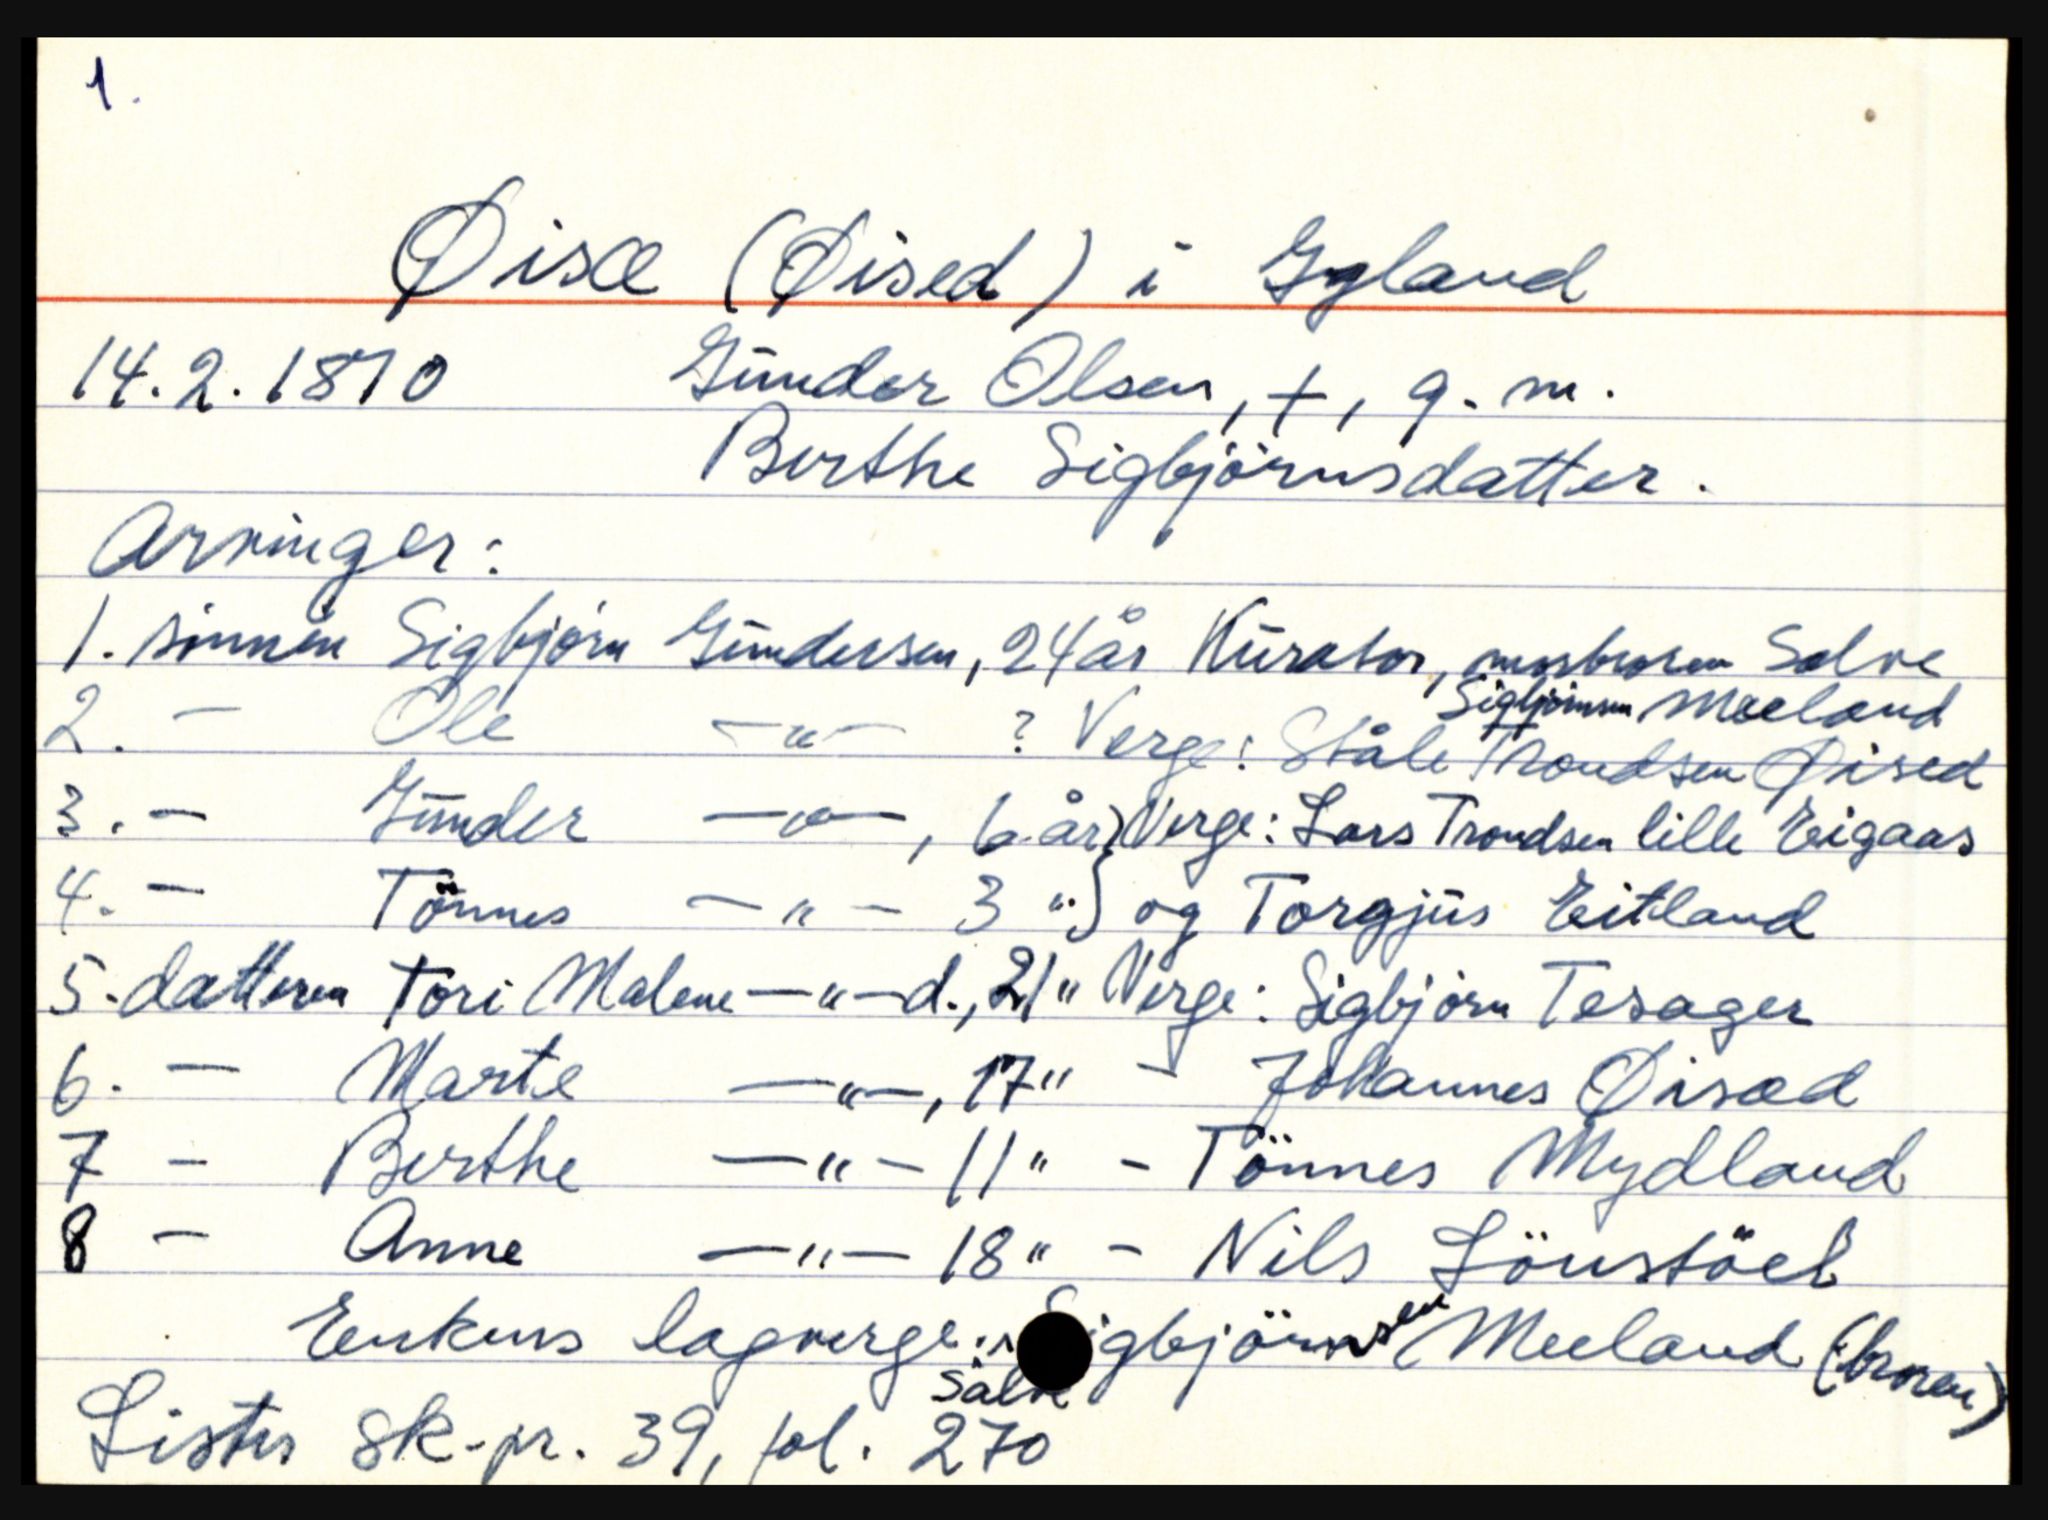 1.
Øisæ (Øised) i Gyland
14.2.1810 Gunder Olsen, +, g. m.
Berthe Sigbjörnsdatter.
Arvinger:
1. sönnen Sigbjørn Gundersen, 24 år Kurator, morbroren Salve
Sigbjörnsen Meeland
2. — Ole —"— ? Verge: Ståle Trondsen Øised
3. — Gunder —"—, 6 år } Verge: Lars Trondsen lille Eigaas
4. — Tönnes —"— 3 " } og Torgjus Eitland
5. datteren Tori Malene —"— d., 21 " Verge: Sigbjørn Tesager
6. — Marte —"—, 17 " - Johannes Øisæd
7 — Berthe —"— 11 " - Tönnes Mydland
8 — Anne —"— 18 " - Nils Lönstöel
Enkens lagverge: Sigbjörnsen Meeland (broren)
Salve
Listers sk-pr. 39, fol. 270